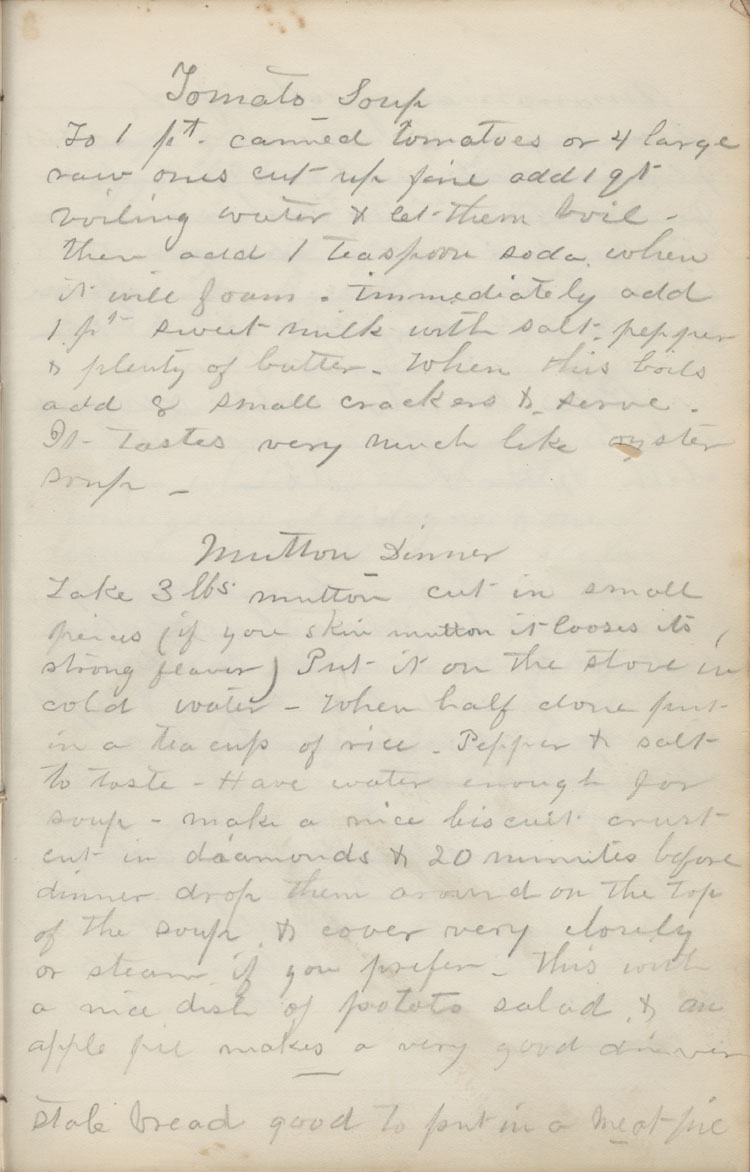 Tomato Soup
To 1 pt. canned tomatoes or 4 large
raw ones cut up fine add 1 qt
boiling water & let them boil -
then add 1 teaspoon soda when
it will foam. immediately add
1 pt sweet milk with salt, pepper
& plenty of butter - When this boils
add 8 small crackers & serve.
It tastes very much like oyster
soup -
Mutton Dinner
Take 3 lbs. mutton cut in small
pieces (if you skin mutton it looses its
strong flavor) Put it on the stove in
cold water - When half done put
in a tea cup of rice - Pepper & salt
to taste - Have water enough for
soup - make a nice biscuit crust
cut in diamonds & 20 minutes before
dinner drop them around on the top
of the soup & cover very closely
or steam if you prefer - This with
a nice dish of potato salad & an
apple pie makes a very good dinner
Stale bread good to put in a meat pie